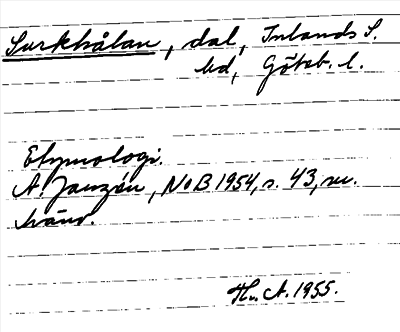 Surkhålan, dal, Inlands S.
hd, Göteb. l.
Etymologi.
A. Janzén, NoB 1954, s. 43, m.
hänv.
Hn. A. 1955.